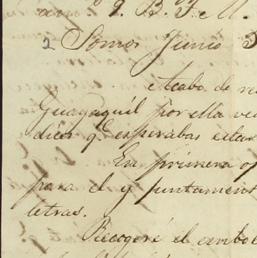 2 Somos Junio
Acabo de re
Guayaquil por ella ve
dices q. esperabas estar
En primera op
para el y juntament
letras.
Recogeré el embol